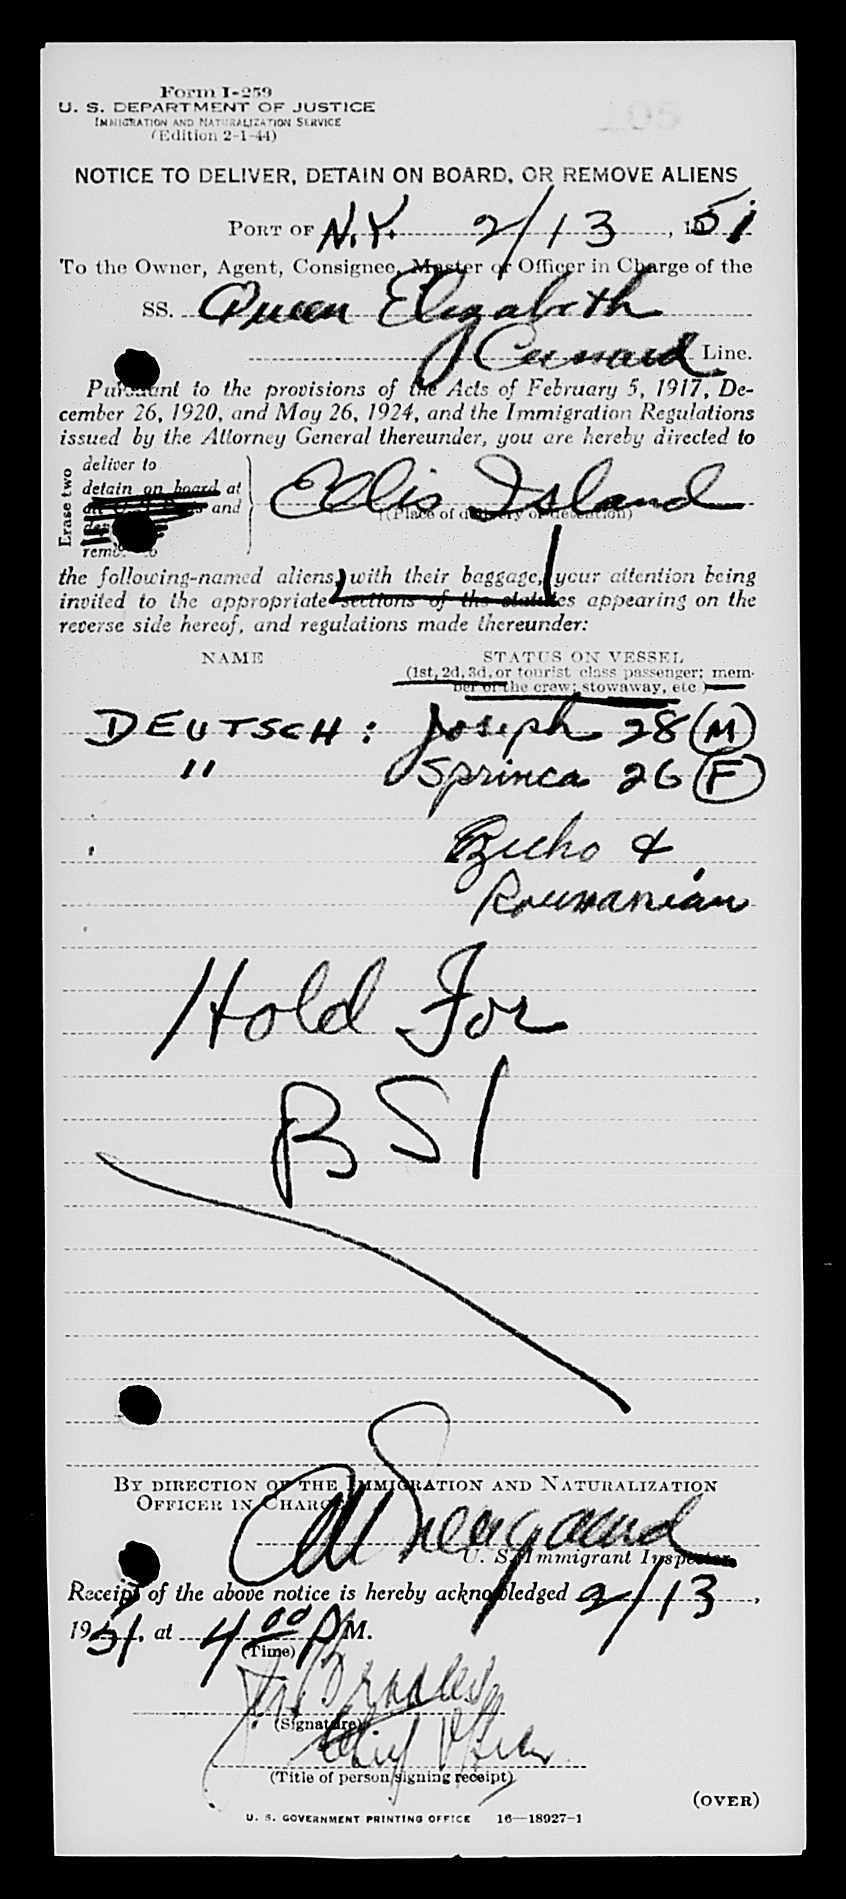 Form I-259
U. S. DEPARTMENT OF JUSTICE
IMMIGRATION AND NATURALIZATION SERVICE
(Edition 2-1-44)
105
NOTICE TO DELIVER, DETAIN ON BOARD, OR REMOVE ALIENS
PORT OF N.Y. 2/13, 1951
To the Owner, Agent, Consignee, Master or Officer in Charge of the
SS. Queen Elizabeth
Cunard Line.
Pursuant to the provisions of the Acts of February 5, 1917, De-
cember 26, 1920, and May 26, 1924, and the Immigration Regulations
issued by the Attorney General thereunder, you are hereby directed to
Erase two
deliver to
detain on board at
and
remove to
Ellis Island
(Place of delivery or detention)
the following-named aliens, with their baggage, your attention being
invited to the appropriate sections of the statutes appearing on the
reverse side hereof, and regulations made thereunder:
NAME STATUS ON VESSEL
(1st, 2d, 3d, or tourist class passenger; mem-
ber of the crew; stowaway, etc.)
DEUTSCH: Joseph 28 (M)
" Sprinca 26 (F)
Czecho &
Roumanian
Hold For
BSI
BY DIRECTION OF THE IMMIGRATION AND NATURALIZATION
OFFICER IN CHARGE
U. S. Immigrant Inspector.
Receipt of the above notice is hereby acknowledged 2/13,
1951, at 4 00 P M.
(Time)
(Signature)
Chief Officer
(Title of person signing receipt)
(OVER)
U. S. GOVERNMENT PRINTING OFFICE 16—18927-1